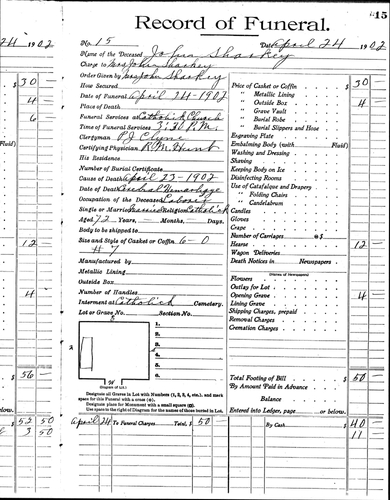 Record of Funeral.
15
No. 15 Date April 24 1902
Name of the Deceased John Sharkey
Charge to Mrs John Sharkey
Order Given by Mrs John Sharkey
How Secured
Date of Funeral April 24 - 1902
Place of Death
Funeral Services at Catholick Church
Time of Funeral Services 3:30 P.M.
Clergyman P. J.
Certifying Physician R. M. Hunt
His Residence
Number of Burial Certificate
Cause of Death April 23 - 1902
Date of Death
Occupation of the Deceased Laborer
Single or Married Married Religion Catholick
Aged 72 Years, — Months, — Days.
Body to be shipped to
Size and Style of Casket or Coffin 6-0
# 7
Manufactured by
Metallic Lining
Outside Box
Number of Handles
Interment at Catholick Cemetery.
Lot or Grave No. Section No.
1.
2.
3.
4.
5.
6.
(Diagram of Lot.)
Designate all Graves in Lot with Numbers (1, 2, 3, 4, etc.), and mark
space for this Funeral with a cross (x).
Designate place for Monument with a small square (□).
Use space in right of Diagram for names of those buried in Lot.
April 24 To Funeral Charges Total, $ 50 —
Price of Casket or Coffin $ 30 —
" Metallic Lining
" Outside Box 4 —
" Grave Vault
" Burial Robe
" Burial Slippers and Hose
Engraving Plate
Embalming Body (with Fluid)
Washing and Dressing
Shaving
Keeping Body on Ice
Disinfecting Rooms
Use of Catafalque and Drapery
" Folding Chairs
" Candelabrum
Candles
Gloves
Crape
Number of Carriages @ $
Hearse 12 —
Wagon Deliveries
Death Notices in Newspapers
(Names of Newspapers)
Flowers
Outlay for Lot
Opening Grave 4 —
Lining Grave
Shipping Charges, prepaid
Removal Charges
Cremation Charges
Total Footing of Bill $ 50
By Amount Paid in Advance
Balance
Entered into Ledger, page or below.
By Cash $ 40
11
24 1902
$ 30 —
4 —
6 —
Fluid)
12 —
4 —
$ 56 —
below.
$ 52 50
3 50